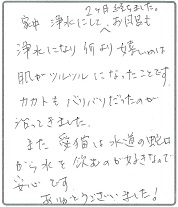 2ヶ月経ちました。
家中 浄水にして、お風呂も
浄水になり 何より嬉しいのは
肌がツルツルになったことです。
カカトもバリバリだったのが
治ってきました。
また 愛猫は水道の蛇口
から水を飲むのが好きなので
安心です。
ありがとうございました!